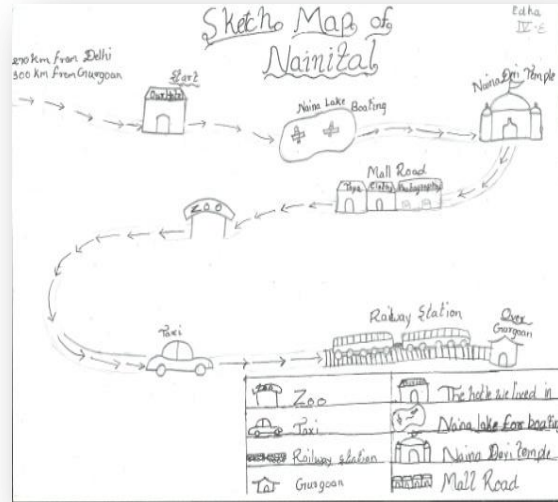 Sketch Map of
Nainital
Edha
IV-E
270 km from Delhi
300 km from Gurgoan
Start
Naina Lake Boating
Naina Devi Temple
Mall Road
Toys
Cloths
Photography
ZOO
Taxi
Railway Station
Over
Gurgoan
Zoo
The hotle we lived in
Taxi
Naina lake for boating
Railway station
Naina Devi temple
Gurgoan
Mall Road